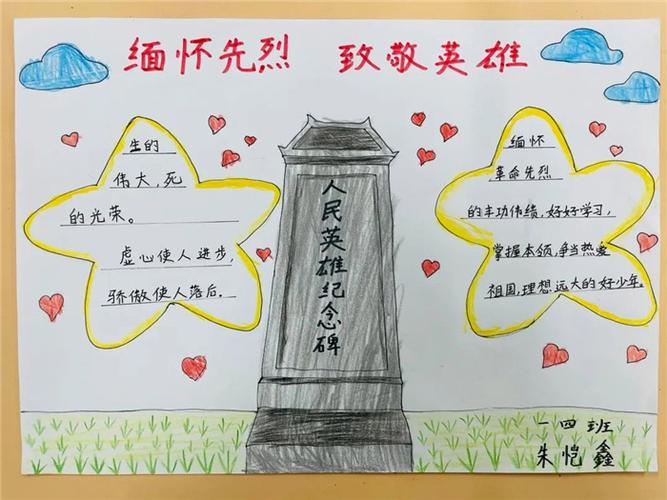 缅怀先烈 致敬英雄
生的
伟大,死
的光荣。
虚心使人进步,
骄傲使人落后.
人民英雄纪念碑
缅怀
革命先烈
的丰功伟绩,好好学习,
掌握本领,争当热爱
祖国,理想远大的好少年。
一四班
朱恺鑫